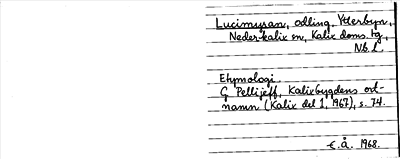 Lucimyran, odling, Ytterbyn,
Neder-Kalix sn, Kalix doms. tg,
Nb. l.
Etymologi.
G Pellijeff, Kalixbygdens ort-
namn (Kalix del 1, 1967), s. 74.
E. Å. 1968.